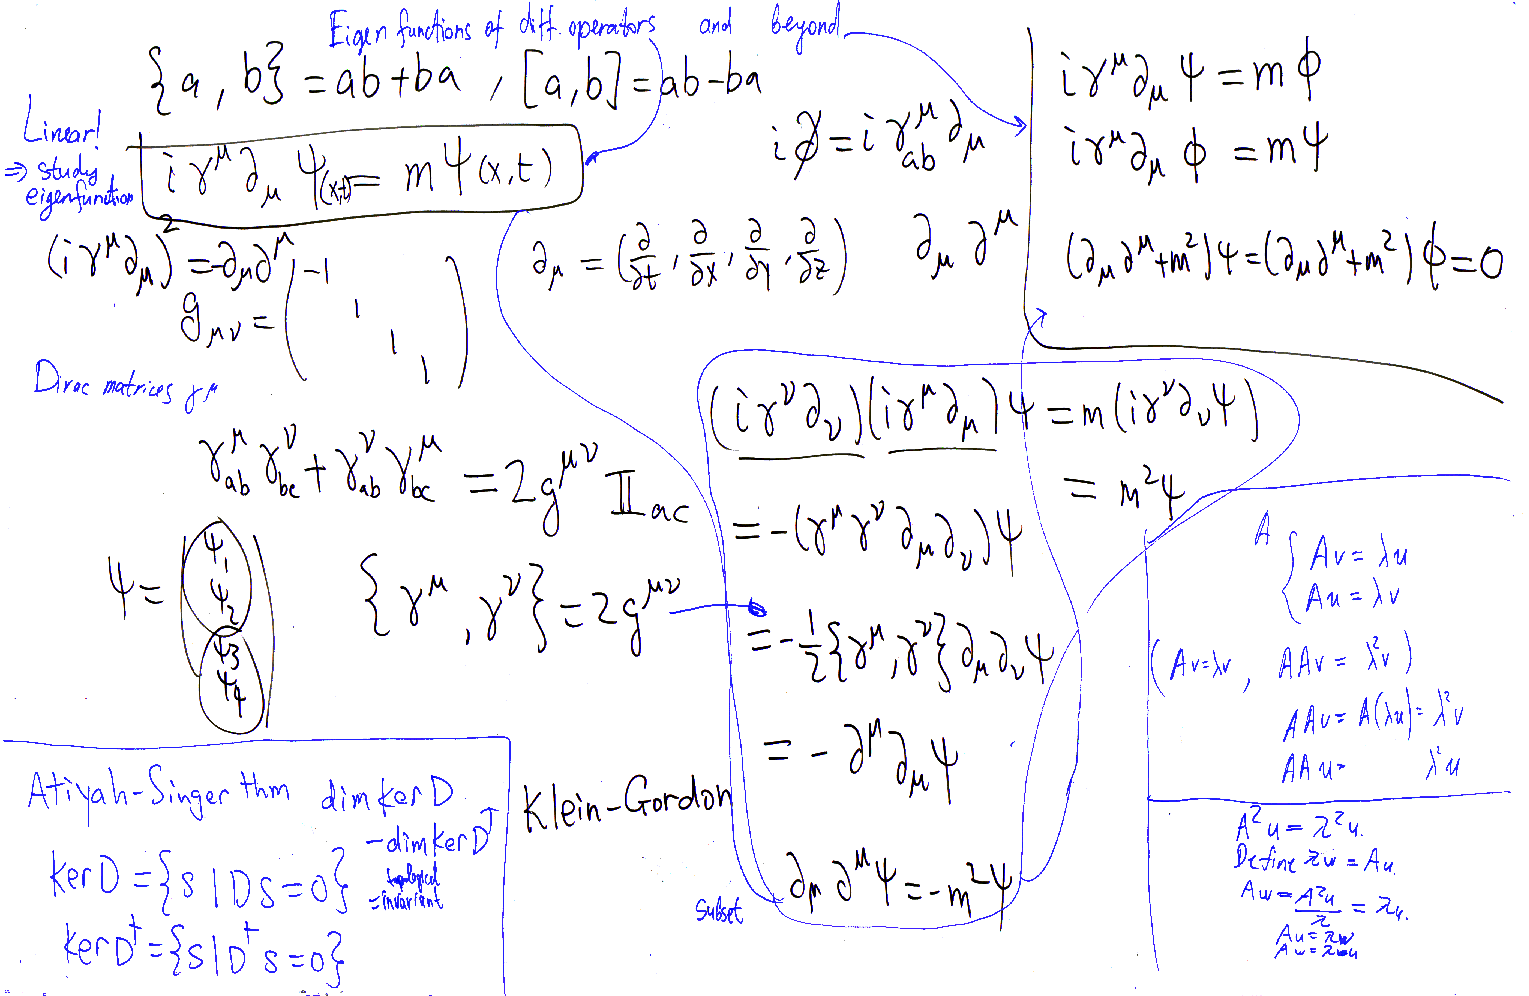 Eigenfunctions of diff. operators and beyond
{a, b} = ab+ba, [a,b]=ab-ba
Linear!
⇒ study
eigenfunction
iγ^μ ∂_μ ψ(x,t) = mψ(x,t)
i∂̸ = iγ^μ_ab ∂_μ
iγ^μ ∂_μ ψ = mϕ
iγ^μ ∂_μ ϕ = mψ
(∂_μ ∂^μ+m²)ψ=(∂_μ ∂^μ+m²)ϕ=0
(iγ^μ ∂_μ)² = -∂_μ ∂^μ
∂_μ = (∂/∂t, ∂/∂x, ∂/∂y, ∂/∂z)
∂_μ ∂^μ
g_μν = ( -1 1 1 1 )
Dirac matrices γ^μ
γ^μ_ab γ^ν_bc + γ^ν_ab γ^μ_bc = 2g^μν 𝕀_ac
ψ = (ψ_1 ψ_2 ψ_3 ψ_4)
{γ^μ, γ^ν} = 2g^μν
(iγ^ν ∂_ν)(iγ^μ ∂_μ)ψ = m(iγ^ν ∂_ν ψ)
= m²ψ
= -(γ^μ γ^ν ∂_μ ∂_ν)ψ
= -1/2{γ^μ, γ^ν}∂_μ ∂_ν ψ
= - ∂^μ ∂_μ ψ
Klein-Gordon
∂_μ ∂^μ ψ = -m²ψ
subset
A { Av = λu
Au = λv
(Av=λv, AAv = λ²v)
AAv = A(λu) = λ²v
AAu = λ²u
A²u = λ²u.
Define λw = Au.
Aw = A²u/λ = λu.
Au = λw
Aw = λu
Atiyah-Singer thm dim ker D
-dim ker D†
= topological
invariant
ker D = {s | Ds = 0}
ker D† = {s | D†s = 0}